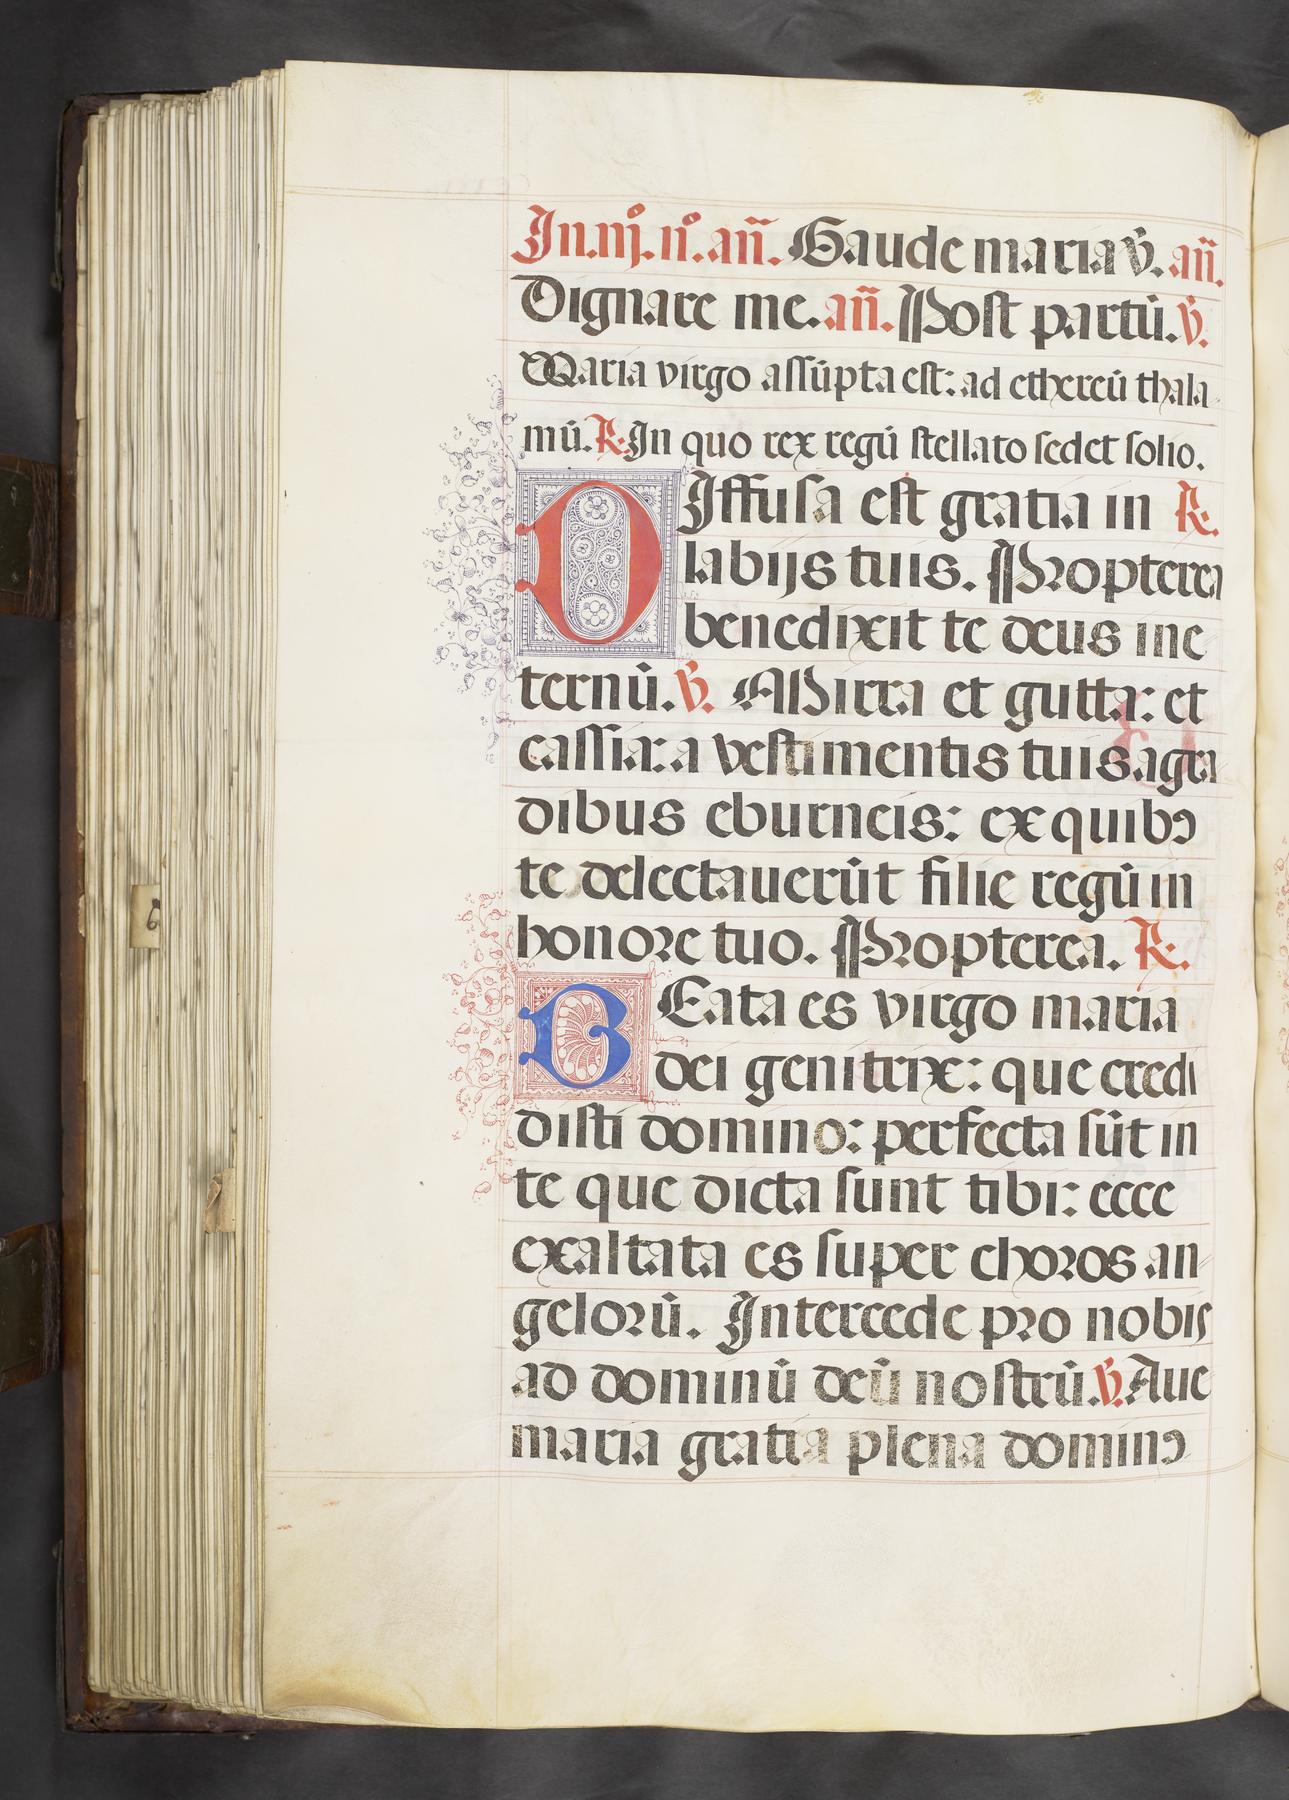 In.iij.nº.añ. Gaude maria v̄. añ.
Dignare me. añ. Post partū. ℣.
Maria virgo assūpta est: ad ethereū thala
mū. ℟. In quo rex regū stellato sedet solio.
DIffusa est gratia in ℟.
labijs tuis. Propterea
benedixit te deus in e
ternū. ℣. Mirra et gutta: et
cassia: a vestimentis tuis a gra
dibus eburneis: ex quibꝰ
te delectauerūt filie regū in
honore tuo. Propterea. ℟.
BEata es virgo maria
dei genitrix: que credi
disti domino: perfecta sūt in
te que dicta sunt tibi: ecce
exaltata es super choros an
gelorū. Intercede pro nobis
ad dominū deū nostrū. ℣. Aue
maria gratia plena dominꝰ
6